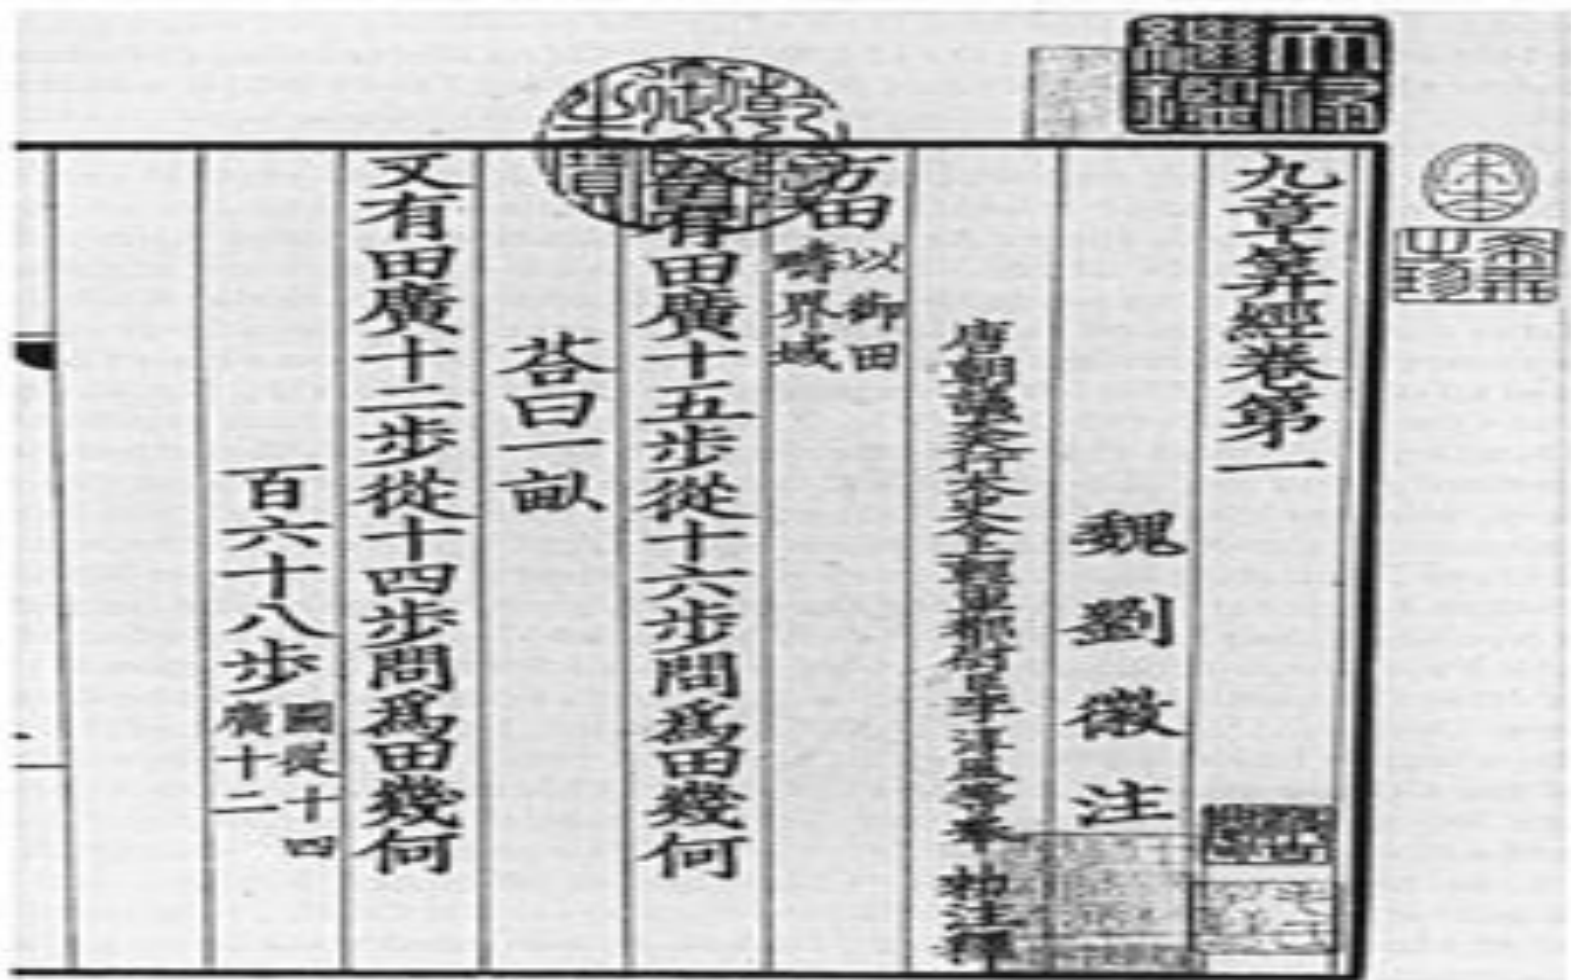 希世之珍
天祿繼鑑
九章筭經卷第一
魏劉徽注
唐朝議大夫行太史令上輕車都尉臣李淳風等奉 勑注釋
乾隆御覽之寶
方田 以御田疇界域
今有田廣十五步從十六步問爲田幾何
荅曰一畝
又有田廣十二步從十四步問爲田幾何
百六十八步 圖從十四廣十二